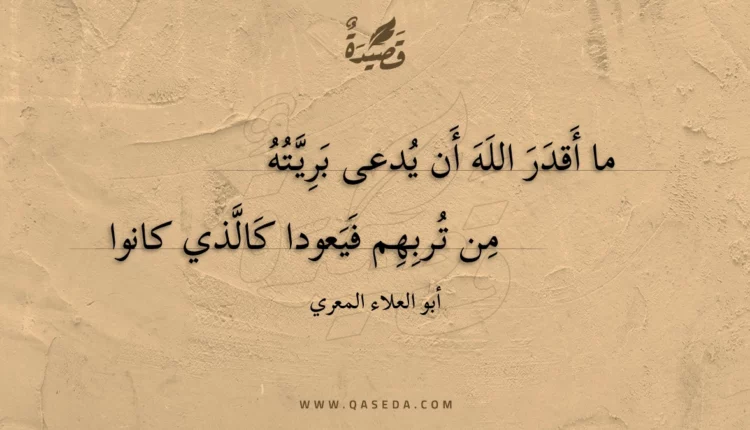 قَصِيدَةٌ
ما أَقدَرَ اللَهَ أَن يُدعى بَرِيَّتُهُ
مِن تُربِهِم فَيَعودا كَالَّذي كانوا
أبو العلاء المعري
WWW.QASEDA.COM